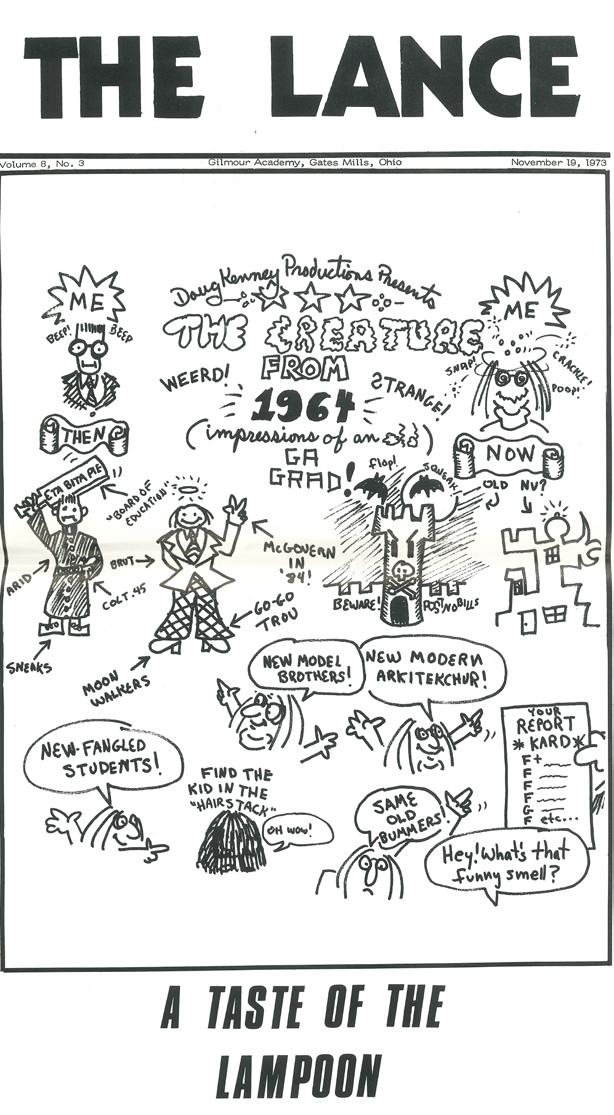 THE LANCE
Volume 8, No. 3
Gilmour Academy, Gates Mills, Ohio
November 19, 1973
Doug Kenney Productions Presents
ME
BEEP!
BEEP
THE CREATURE
FROM
1964
(impressions of an
GA
GRAD!
)
WEERD!
STRANGE!
ME
SNAP!
CRACKLE!
POOP!
THEN
NOW
ETA BITA PIE
"BOARD OF
EDUCATION"
ARID
COLT .45
SNEAKS
BRUT
McGOVERN
IN
'84!
GO-GO
TROU
MOON
WALKERS
flop!
SQUEAK
BEWARE!
POST NO BILLS
OLD
NU?
NEW MODEL
BROTHERS!
NEW MODERN
ARKITEKCHUR!
NEW-FANGLED
STUDENTS!
FIND THE
KID IN THE
"HAIRSTACK"
OH WOW!
SAME
OLD
BUMMERS!
YOUR
REPORT
* KARD *
F+
F
F
F
G
F etc...
Hey! What's that
funny smell?
A TASTE OF THE
LAMPOON